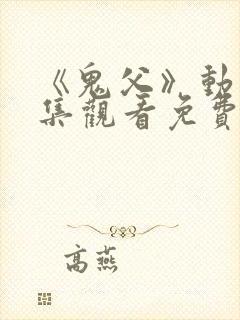 《鬼父》動
集觀看免費
高燕